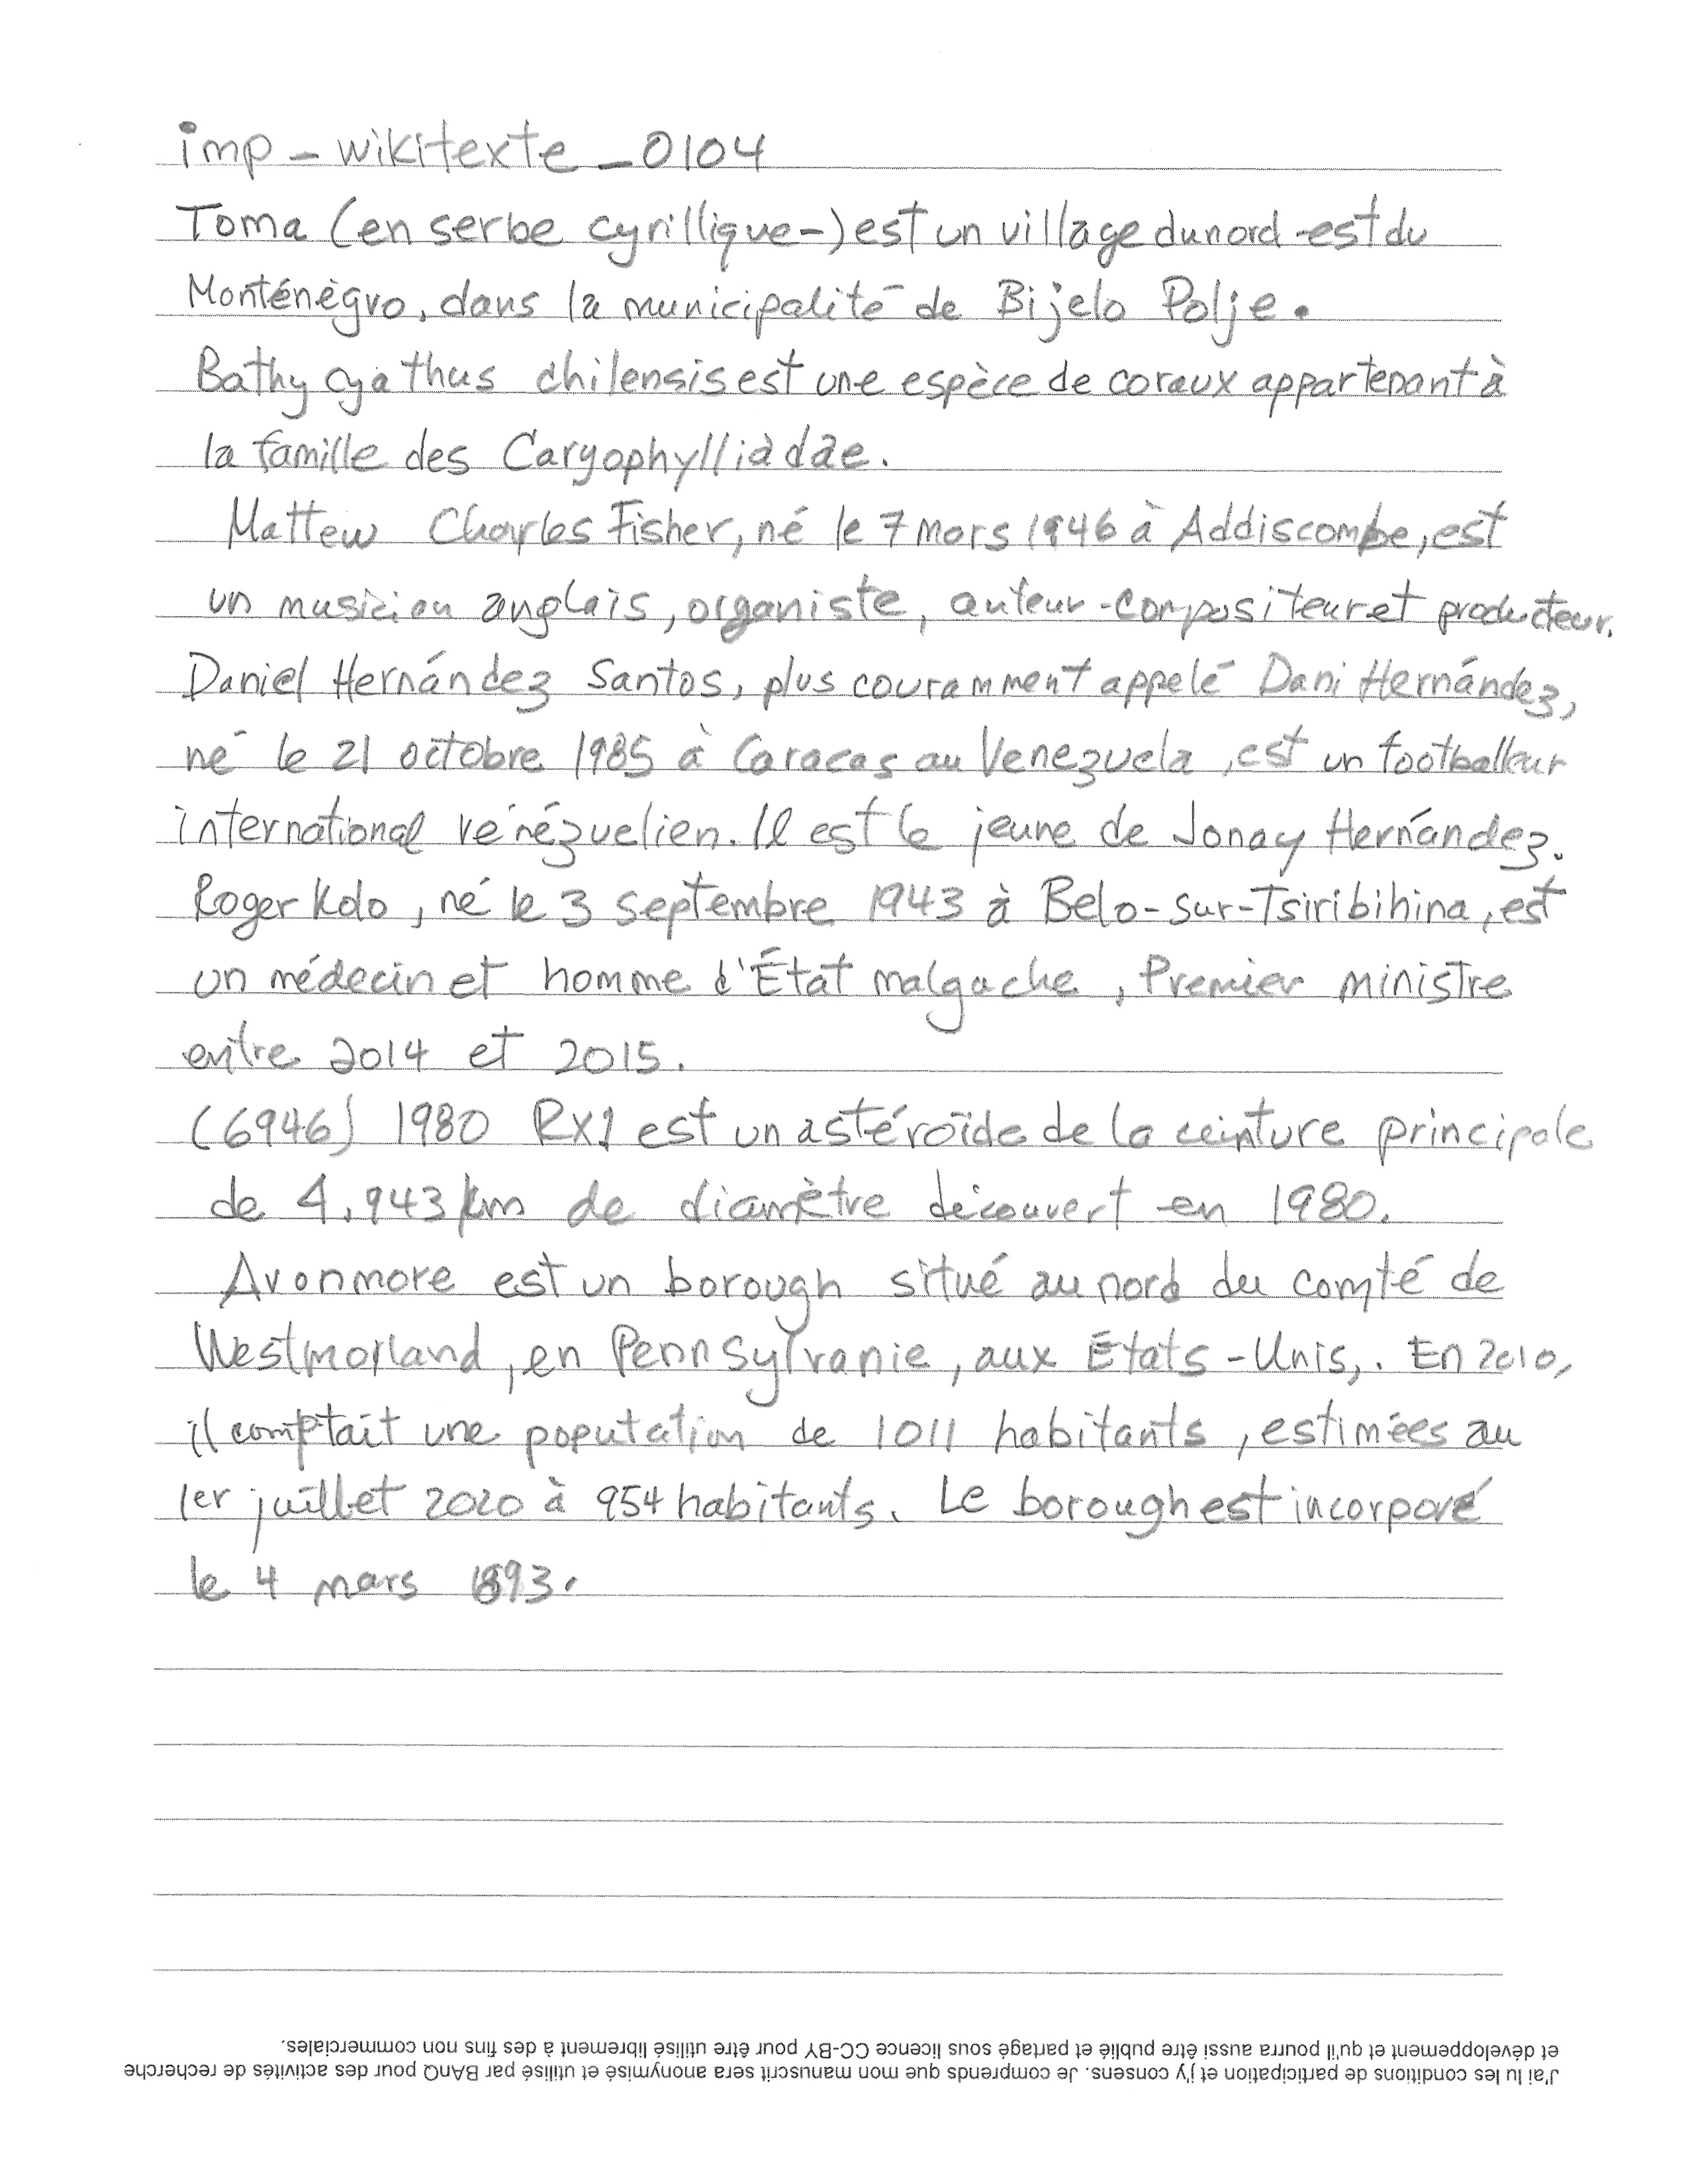 imp-wikitexte_0104
Toma (en serbe cyrillique-) est un village du nord-est du
Monténègro, dans la municipalité de Bijelo Polje.
Bathycyathus chilensis est une espèce de coraux appartenant à
la famille des Caryophylliàdae.
Mattew Charles Fisher, né le 7 mars 1946 à Addiscombe, est
un musicien anglais, organiste, auteur-compositeur et producteur.
Daniel Hernández Santos, plus couramment appelé Dani Hernández,
né le 21 octobre 1985 à Caracas au Venezuela, est un footballeur
international vénézuelien. Il est le jeune de Jonay Hernández.
Roger Kolo, né le 3 septembre 1943 à Belo-sur-Tsiribihina, est
un médecin et homme d'État malgache, Premier ministre
entre 2014 et 2015.
(6946) 1980 RX1 est un astéroïde de la ceinture principale
de 4,943 km de diamètre découvert en 1980.
Avonmore est un borough situé au nord du comté de
Westmorland, en Pennsylvanie, aux États-Unis,. En 2010,
il comptait une population de 1011 habitants, estimées au
1er juillet 2020 à 954 habitants. Le borough est incorporé
le 4 mars 1893.
J'ai lu les conditions de participation et j'y consens. Je comprends que mon manuscrit sera anonymisé et utilisé par BAnQ pour des activités de recherche
et développement et qu'il pourra aussi être publié et partagé sous licence CC-BY pour être utilisé librement à des fins non commerciales.